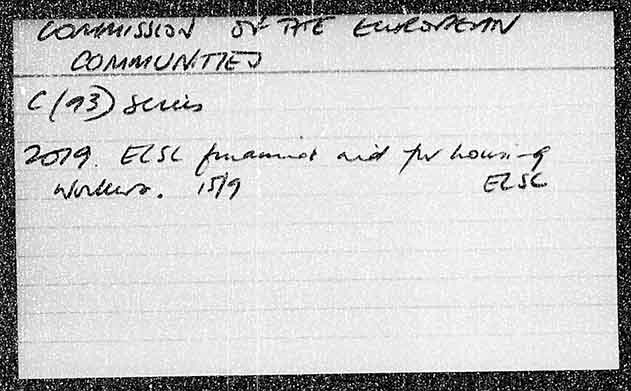 COMMISSION OF THE EUROPEAN
COMMUNITIES
C (93) Series
2019. ECSC financial aid for housing
workers. 15/9 ECSC